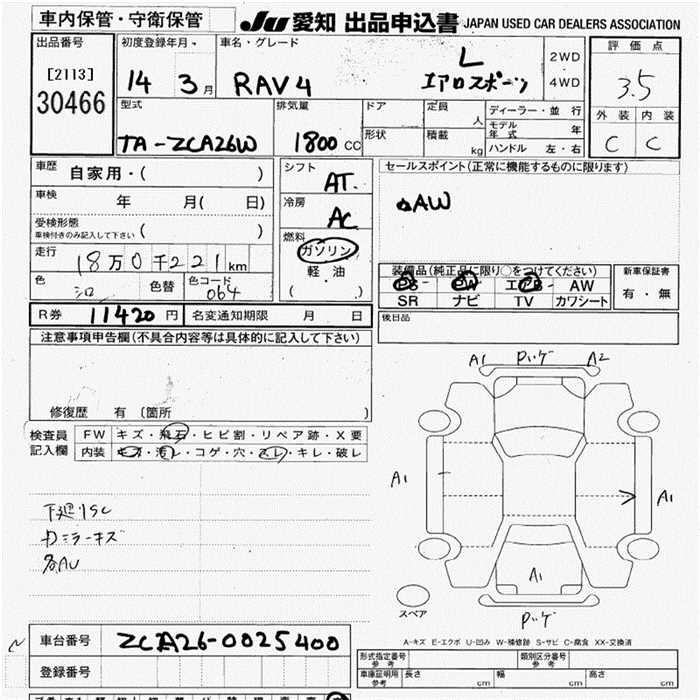 車内保管・守衛保管
JU 愛知 出品申込書 JAPAN USED CAR DEALERS ASSOCIATION
出品番号
[2113]
30466
初度登録年月
14 3月
車名・グレード
RAV4 L エアロスポーツ
2WD
4WD
評価点
3.5
外装 内装
C C
型式
TA-ZCA26W
排気量
1800 CC
ドア
形状
定員 人
積載 kg
ディーラー・並行
モデル年式 年
ハンドル 左・右
車歴 自家用・( )
車検 年 月( 日)
受検形態
車検付きのみ記入して下さい ( )
走行 18万0千221km
色 シロ 色替 色コード 064
シフト AT
冷房 AC
燃料
ガソリン
軽油
( )
セールスポイント(正常に機能するものに限ります)
AW
装備品(純正品に限り○をつけてください)
PS PW エアB AW
SR ナビ TV カワシート
新車保証書
有・無
R券 11420円 名変通知期限 月 日
後日品
注意事項申告欄(不具合内容等は具体的に記入して下さい)
修復歴 有 〔箇所 〕
検査員記入欄
FW キズ・飛石・ヒビ割・リペア跡・X要
内装 キズ・汚レ・コゲ・穴・スレ・キレ・破レ
下廻りSC
カミラーキズ
各AU
A1 Pハゲ A2
A1 A1
A1
スペア Pハゲ
A-キズ E-エクボ U-凹み W-補修跡 S-サビ C-腐食 XX-交換済
車台番号 ZCA26-0025400
登録番号
形式指定番号 参考
類別区分番号 参考
車庫証明用 参考 長さ cm 幅 cm 高さ cm